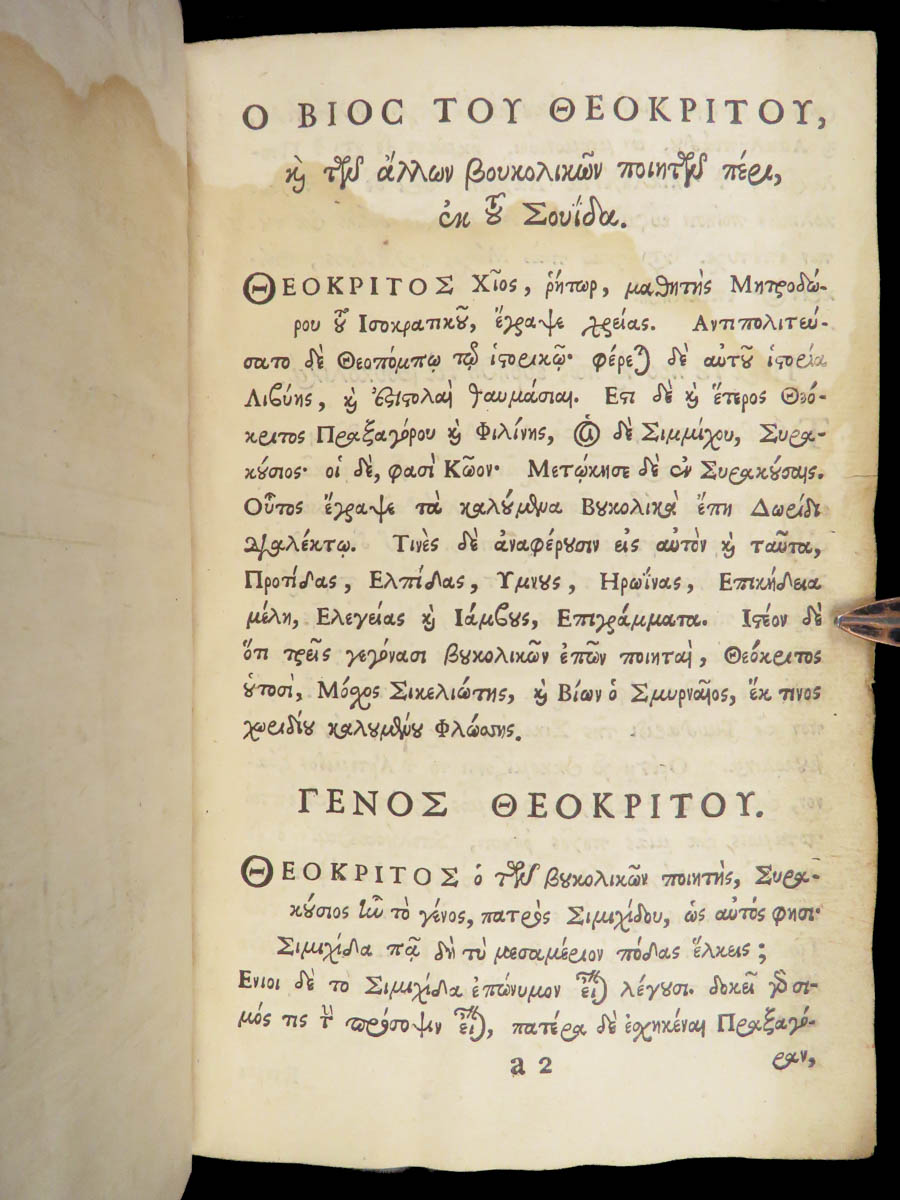 Ο ΒΙΟC ΤΟΥ ΘΕΟΚΡΙΤΟΥ,
ϗ τῶν ἄλλων βουκολικῶν ποιητῶν πέρι,
ἐκ τοῦ Σουΐδα.
ΘΕΟΚΡΙΤΟΣ Χῖος, ῥήτωρ, μαθητὴς Μητροδώ-
ρου τοῦ Ισοκρατικοῦ, ἔγραψε χρείας. Αντιπολιτεύ-
σατο δὲ Θεοπόμπῳ τῷ ἱστορικῷ· φέρεται δὲ αὐτοῦ ἱστορία
Λιβύης, ϗ ἐπιστολαὶ θαυμάσιαι. Εστι δὲ ϗ ἕτερος Θεό-
κριτος Πραξαγόρου ϗ Φιλίνης, οἱ δὲ Σιμμίχου, Συρα-
κούσιος· οἱ δὲ, φασὶ Κῶον· Μετῴκησε δὲ ἐν Συρακούσαις.
Οὗτος ἔγραψε τὰ καλούμενα Βουκολικὰ ἔπη Δωρίδι
διαλέκτῳ. Τινὲς δὲ ἀναφέρουσιν εἰς αὐτὸν ϗ ταῦτα,
Προτίδας, Ελπίδας, Υμνους, Ηρωΐνας, Επικήδεια
μέλη, Ελεγείας ϗ Ιάμβους, Επιγράμματα. Ιστέον δὲ
ὅτι τρεῖς γεγόνασι βουκολικῶν ἐπῶν ποιηταὶ, Θεόκριτος
οὑτοσὶ, Μόσχος Σικελιώτης, ϗ Βίων ὁ Σμυρναῖος, ἔκ τινος
χωριδίου καλουμένου Φλώσσης.
ΓΕΝΟΣ ΘΕΟΚΡΙΤΟΥ.
ΘΕΟΚΡΙΤΟΣ ὁ τῶν βουκολικῶν ποιητὴς, Συρα-
κούσιος ἦν τὸ γένος, πατρὸς Σιμιχίδου, ὡς αὐτός φησι·
Σιμιχίδα πᾷ δὴ τὺ μεσαμέριον πόδας ἕλκεις;
Ενιοι δὲ τὸ Σιμιχίδα ἐπώνυμον εἶναι λέγουσι. δοκεῖ γὰρ σι-
μός τις τὴν πρόσοψιν εἶναι, πατέρα δὲ ἐσχηκέναι Πραξαγό-
a 2
ραν,